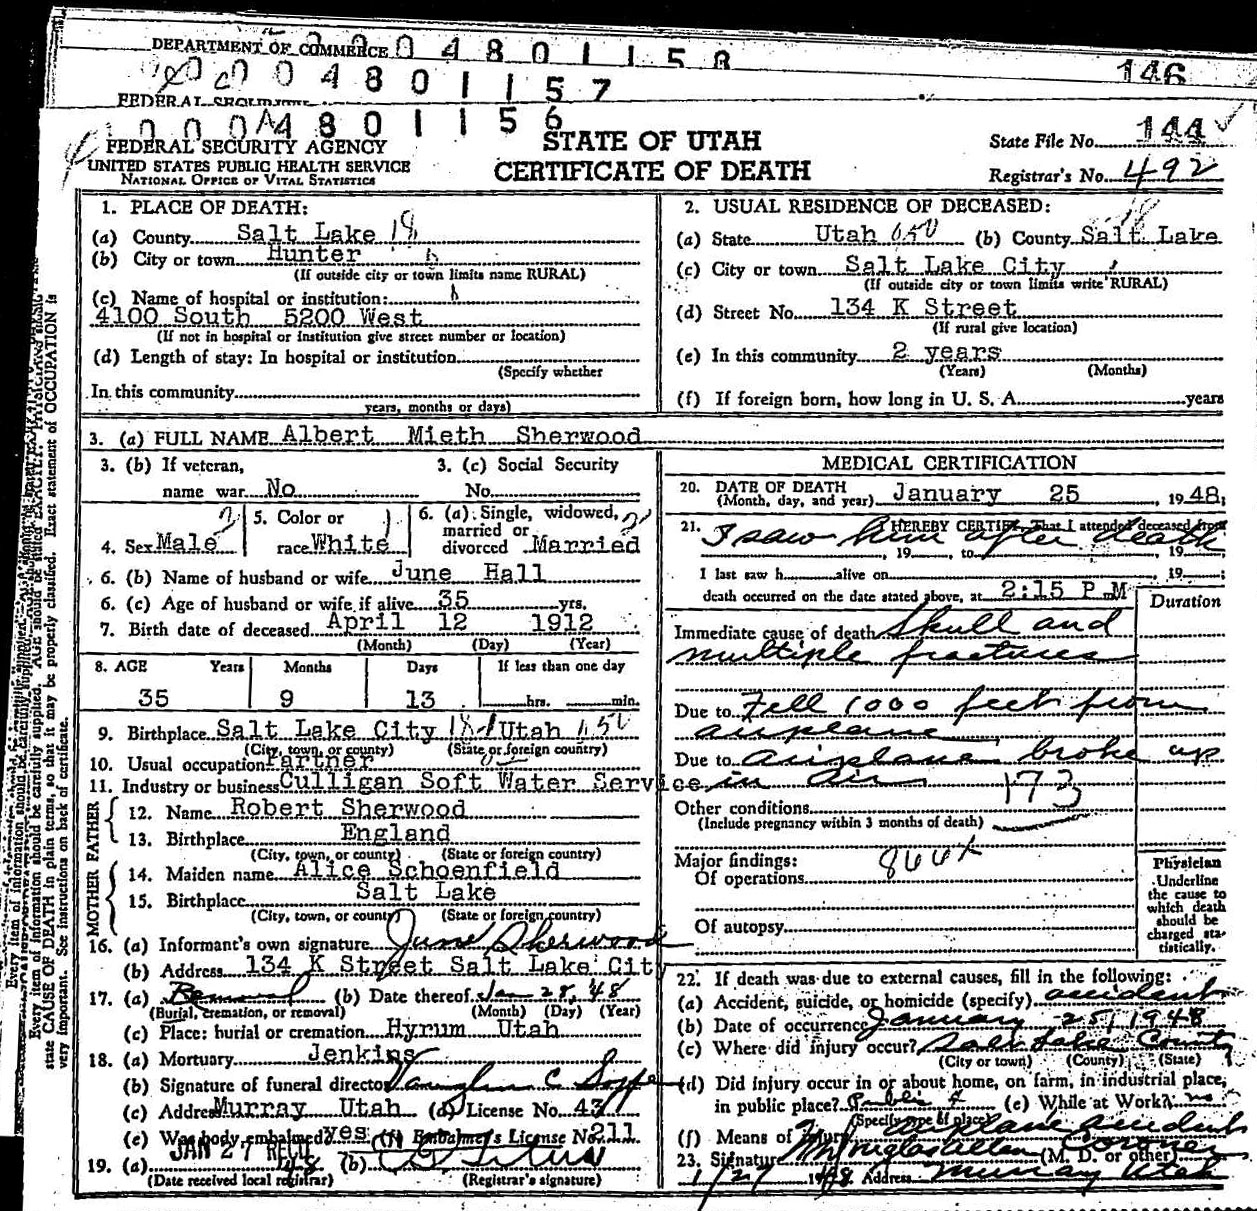 DEPARTMENT OF COMMERCE 0 4 8 0 1 1 5 8
146
0 0 0 4 8 0 1 1 5 7
FEDERAL SECURITY
0 0 0 4 8 0 1 1 5 6
FEDERAL SECURITY AGENCY
UNITED STATES PUBLIC HEALTH SERVICE
NATIONAL OFFICE OF VITAL STATISTICS
STATE OF UTAH
CERTIFICATE OF DEATH
State File No. 144
Registrar's No. 492
1. PLACE OF DEATH:
(a) County Salt Lake 18
(b) City or town Hunter
(If outside city or town limits name RURAL)
(c) Name of hospital or institution:
4100 South 5200 West
(If not in hospital or institution give street number or location)
(d) Length of stay: In hospital or institution
(Specify whether
In this community
years, months or days)
2. USUAL RESIDENCE OF DECEASED:
(a) State Utah 650 (b) County Salt Lake
(c) City or town Salt Lake City
(If outside city or town limits write RURAL)
(d) Street No. 134 K Street
(If rural give location)
(e) In this community 2 years
(Years) (Months)
(f) If foreign born, how long in U. S. A. years
3. (a) FULL NAME Albert Mieth Sherwood
3. (b) If veteran,
name war No
3. (c) Social Security
No.
4. Sex Male
5. Color or
race White
6. (a) Single, widowed,
married or
divorced Married
6. (b) Name of husband or wife June Hall
6. (c) Age of husband or wife if alive 35 yrs.
7. Birth date of deceased April 12 1912
(Month) (Day) (Year)
8. AGE Years Months Days If less than one day
35 9 13 hrs. min.
9. Birthplace Salt Lake City 18 Utah 650
(City, town, or county) (State or foreign country)
10. Usual occupation Partner
11. Industry or business Culligan Soft Water Service
FATHER
12. Name Robert Sherwood
13. Birthplace England
(City, town, or county) (State or foreign country)
MOTHER
14. Maiden name Alice Schoenfield
15. Birthplace Salt Lake
(City, town, or county) (State or foreign country)
16. (a) Informant's own signature June Sherwood
(b) Address 134 K Street Salt Lake City
17. (a) Removal (b) Date thereof Jan 28, 48
(Burial, cremation, or removal) (Month) (Day) (Year)
(c) Place: burial or cremation Hyrum Utah
18. (a) Mortuary Jenkins
(b) Signature of funeral director
(c) Address Murray Utah (d) License No. 437
(e) Was body embalmed? yes (f) Embalmer's License No. 211
JAN 27 REC'D
19. (a) 48 (b)
(Date received local registrar) (Registrar's signature)
MEDICAL CERTIFICATION
20. DATE OF DEATH
(Month, day, and year) January 25, 1948;
21. I HEREBY CERTIFY, That I attended deceased from
I saw him after death
, 19 , to , 19 ;
I last saw h alive on , 19 ;
death occurred on the date stated above, at 2:15 P M
Duration
Immediate cause of death Skull and
multiple fractures
Due to Fell 1000 feet from
airplane
Due to Airplane broke up
in air
173
Other conditions
(Include pregnancy within 3 months of death)
Major findings:
Of operations 866X
Of autopsy
Physician
Underline
the cause to
which death
should be
charged sta-
tistically.
22. If death was due to external causes, fill in the following:
(a) Accident, suicide, or homicide (specify) accident
(b) Date of occurrence January 25, 1948
(c) Where did injury occur? Salt Lake County
(City or town) (County) (State)
(d) Did injury occur in or about home, on farm, in industrial place,
in public place? Public (e) While at Work? no
(Specify type of place)
(f) Means of injury airplane accident
23. Signature Coroner
(M. D. or other)
1/27 1948 Address Murray Utah
Every item of information should be carefully supplied. AGE should be stated EXACTLY. PHYSICIANS should
state CAUSE OF DEATH in plain terms, so that it may be properly classified. Exact statement of OCCUPATION is
very important. See instructions on back of certificate.